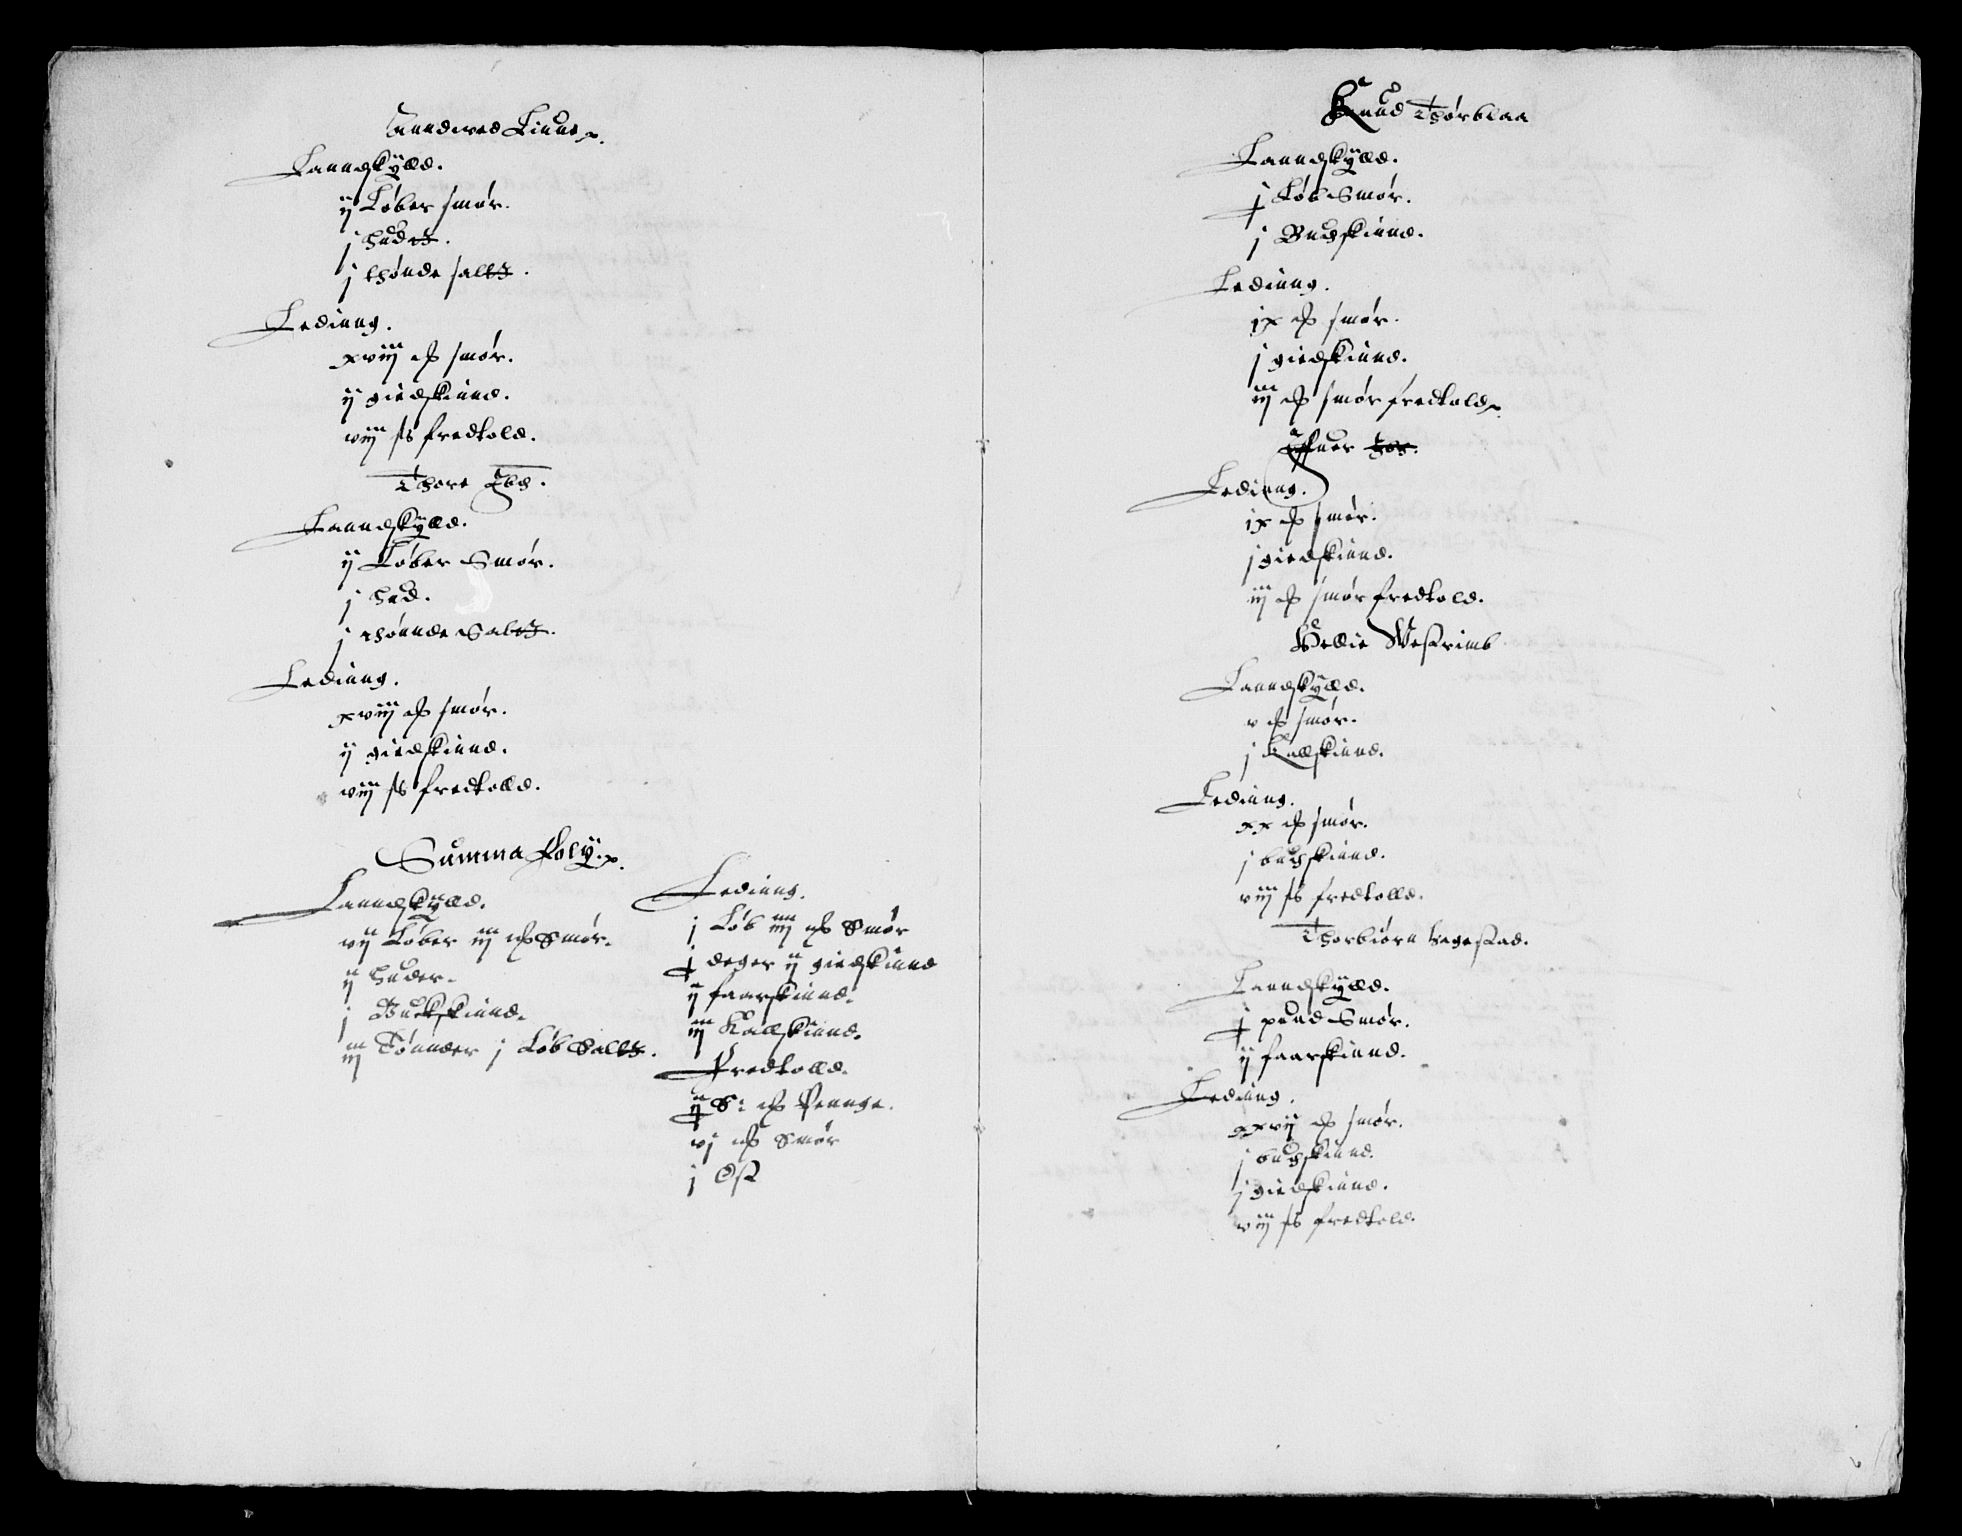 Anndved Linne
Lanndskÿld.
ij Løber smør.
j hudt.
j thønde salt.
Leding.
xviij ℔ smør.
ij giedskind.
viij ß fredtold.
Thore
Lanndskÿld.
ij Løber Smør.
j hud.
j thønnde Salt.
Leding.
xviij ℔ smør.
ij giedskinnd.
viij ß fredtolld.
Summa folÿ.
Lanndskÿld.
vij Løber iij ℔ Smør.
ij huder.
j Buckskinnd.
iij Tønnder j Løb Salt.
Leding.
j Løb iiij ℔ Smør
deger ij giedskinnd
ij faarskinnd.
iij Kalfskinnd.
Fredtolld.
ij ℔ Pennge.
vj ℔ Smør
j Ost
Knud Thørblaa
Lanndskÿld.
Løb Smør.
j Buchskinnd.
Leding.
ix ℔ smør.
j giedskinnd.
iiij ℔ smør fredtold
Effuer
Leding.
ix ℔ smør.
j giedskinnd.
iij ℔ smør fredtold.
Helie Westrimb
Lanndskÿld.
v ℔ smør.
j Kalfskinnd.
Leding.
xx ℔ smør.
j buchskinnd.
viij ß fredtolld.
Thorbiørn hegestad.
Lanndskÿld.
pund Smør.
ij faarskinnd.
Leding.
xxvij ℔ smør.
j buchskinnd.
j giedskinnd.
viij ß fredtold.